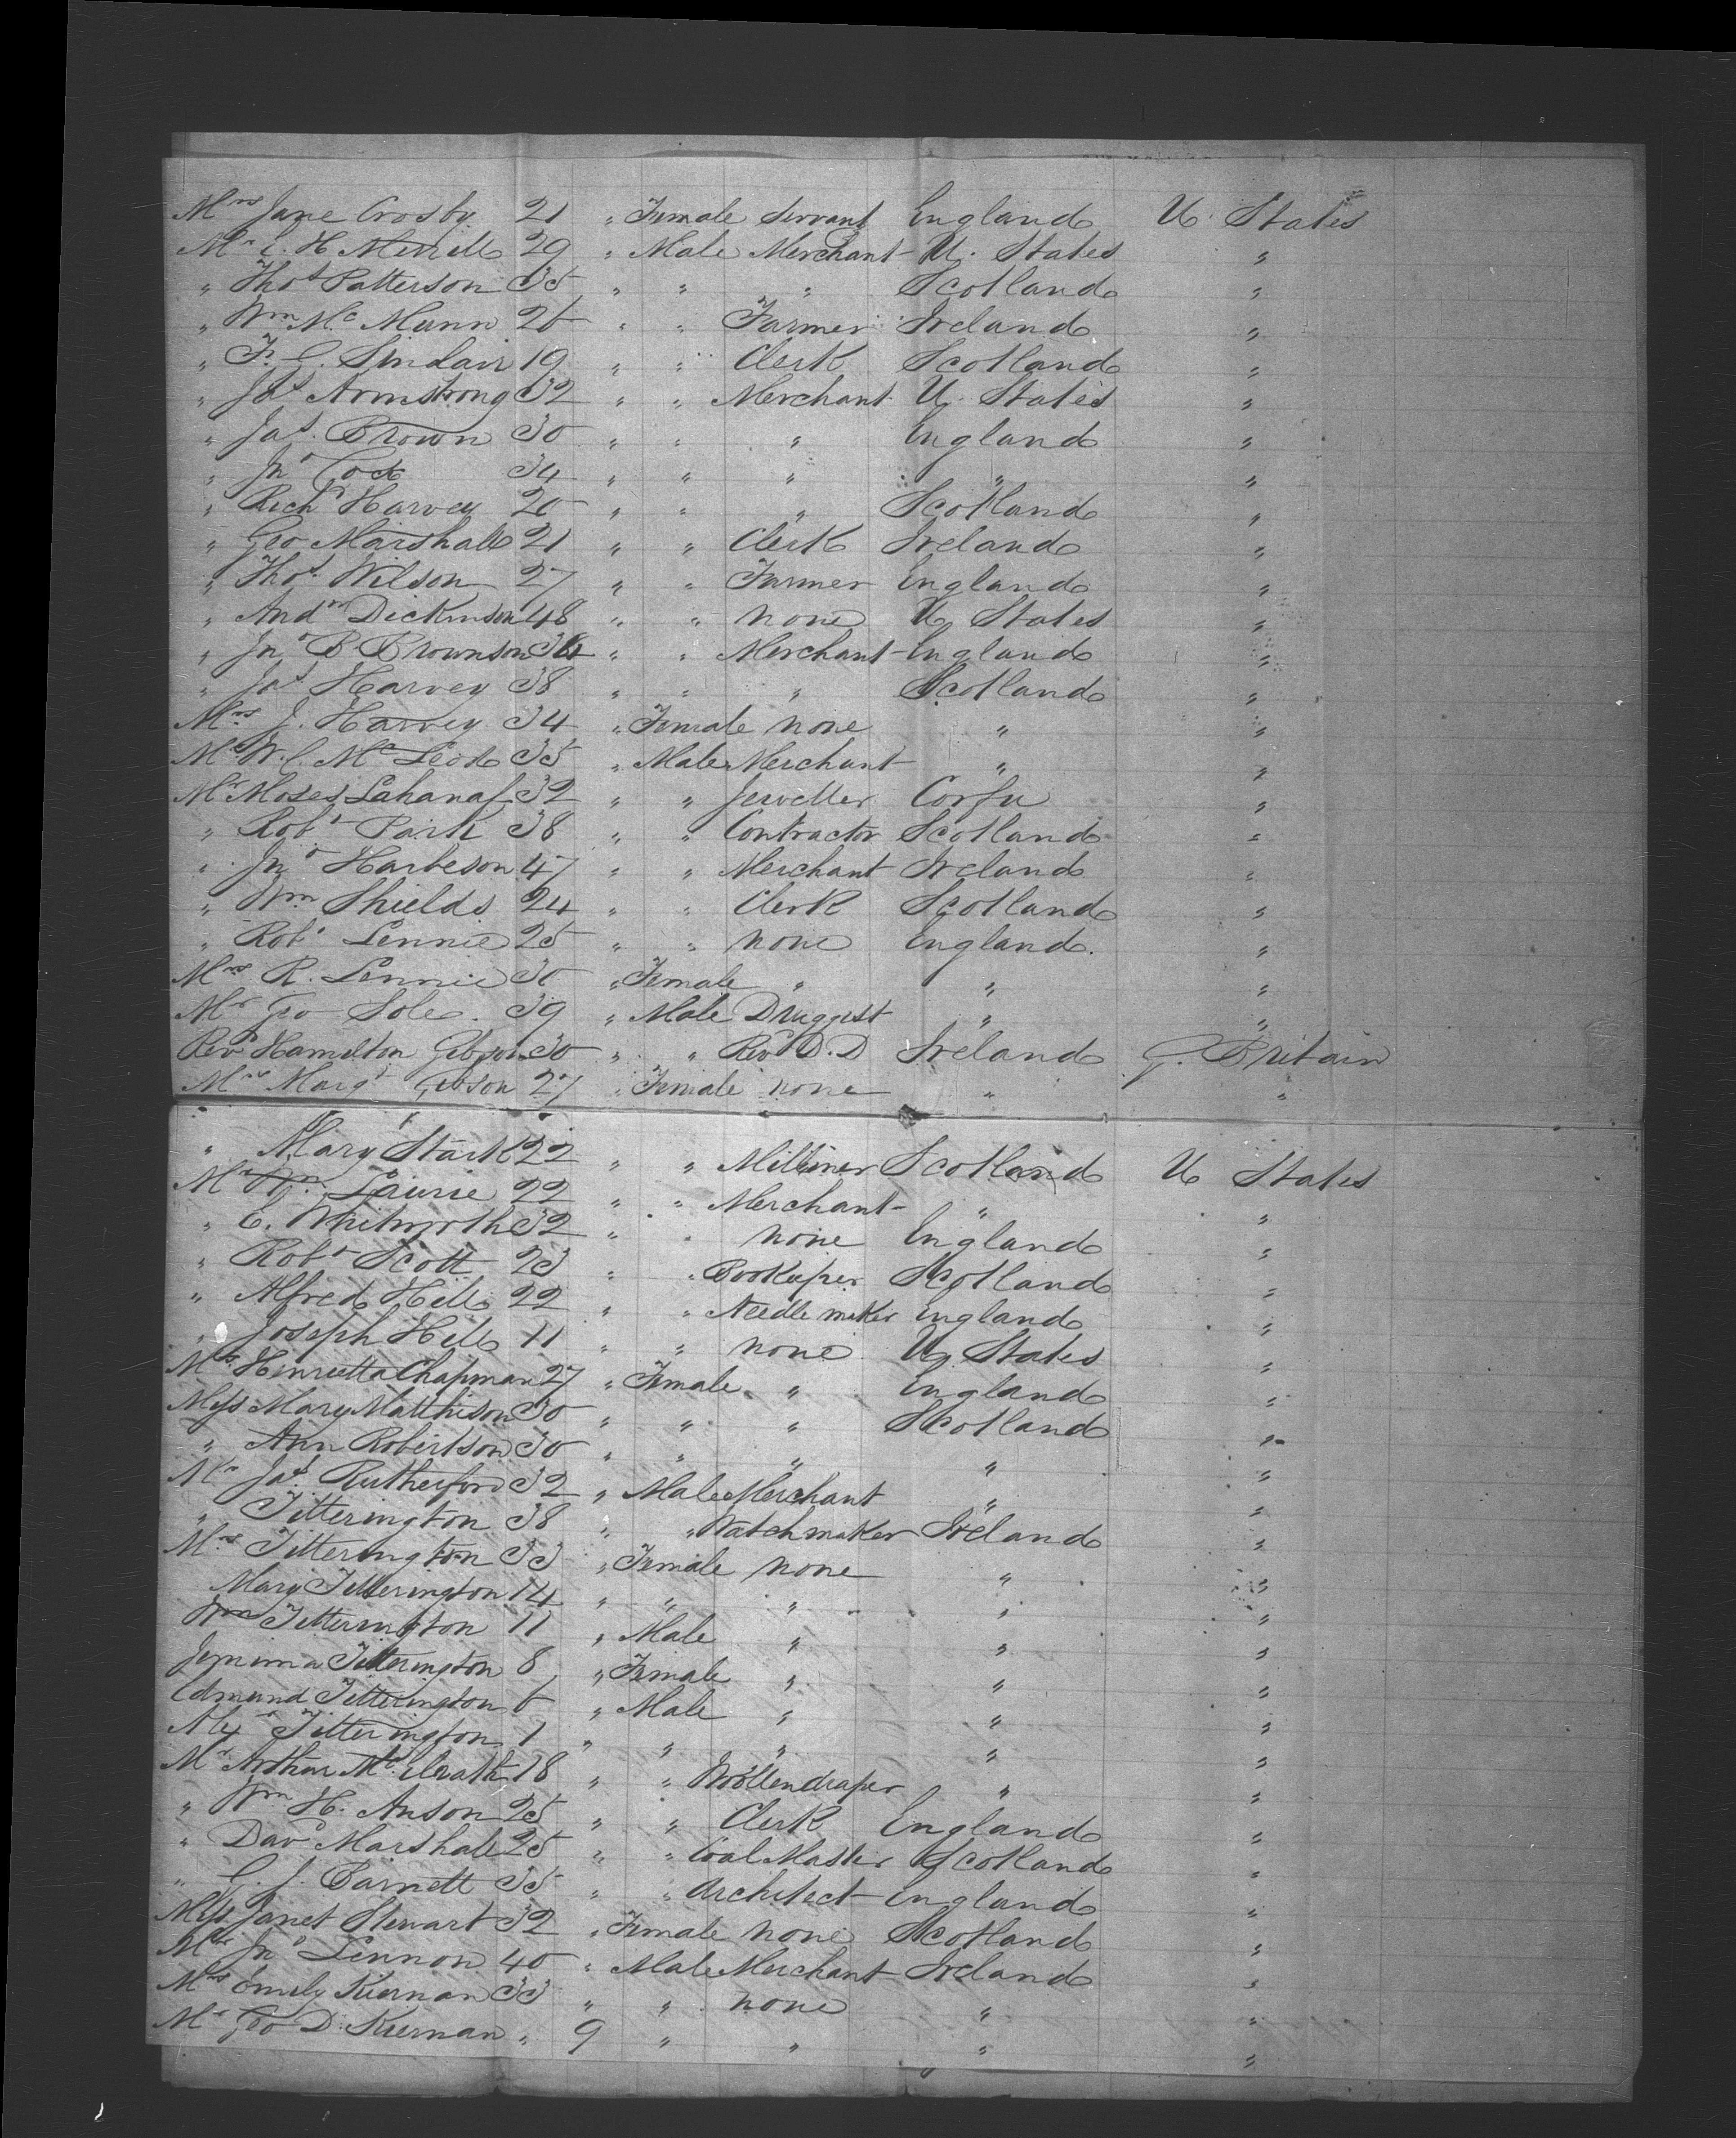 Mrs Jane Crosby 21 " Female Servant England U. States
Mr C. H. Merrill 29 " Male Merchant U. States "
" Thos Patterson 35 " " " Scotland "
" Wm Mc Munn 26 " " Farmer Ireland "
" F. C. Sinclair 19 " " Clerk Scotland "
" Jas Armstrong 32 " " Merchant U. States "
" Jas. Brown 30 " " " England "
" Jno Cock 34 " " " " "
" Richd Harvey 20 " " " Scotland "
" Geo Marshall 21 " " Clerk Ireland "
" Thos. Wilson 27 " " Farmer England "
" Andw Dickinson 48 " " none U States "
" Jno B Brownson 36 " " Merchant England "
" Jas Harvey 38 " " " Scotland "
Mrs J. Harvey 34 " Female none " "
Mr W. C. Mc Leod 35 " Male Merchant " "
Mr Moses Lahanas 32 " " Jeweller Corfu "
" Robt Park 38 " " Contractor Scotland "
" Jno Harbeson 47 " " Merchant Ireland "
" Wm Shields 24 " " Clerk Scotland "
" Robt Lennie 25 " " none England. "
Mrs R. Lennie 30 " Female " " "
Mr Geo Sole. 39 " Male Druggist " "
Revd Hamilton Gibson 30 " " Revd D. D Ireland G. Britain
Mrs Margt Gibson 27 " Female none " "
" Mary Stark 22 " " Milliner Scotland U States
Mr Wm. Laurie 22 " " Merchant " "
" C. Whitworth 32 " " none England "
" Robt Scott 23 " " Bookeeper Scotland "
" Alfred Hill 22 " " Needle maker England "
" Joseph Hill 11 " " none U. States "
Mrs Henrietta Chapman 27 " Female " England "
Miss Mary Matthison 30 " " " Scotland "
" Ann Robertson 30 " " " " "
Mr Jas. Rutherford 32 " Male Merchant " "
" Titterington 38 " " Watchmaker Ireland "
Mrs Titterington 33 " Female none " "
Mary Titterington 14 " " " " "
Wm Titterington 11 " Male " " "
Jemima Titterington 8 " Female " " "
Edmund Titterington 6 " Male " " "
Alexr Titterington 1 " " " " "
Mr Arthur Mc Ilrath 18 " " Woollendraper " "
" Wm H. Anson 25 " " Clerk England "
" Davd Marshall 25 " " Coal Master Scotland "
" G. J. Barnett 35 " " Architect England "
Miss Janet Stewart 32 " Female none Scotland "
Mr Jno Lennon 40 " Male Merchant Ireland "
Mrs Emily Kiernan 33 " " none " "
Mr Geo D. Kiernan " 9 " " " "